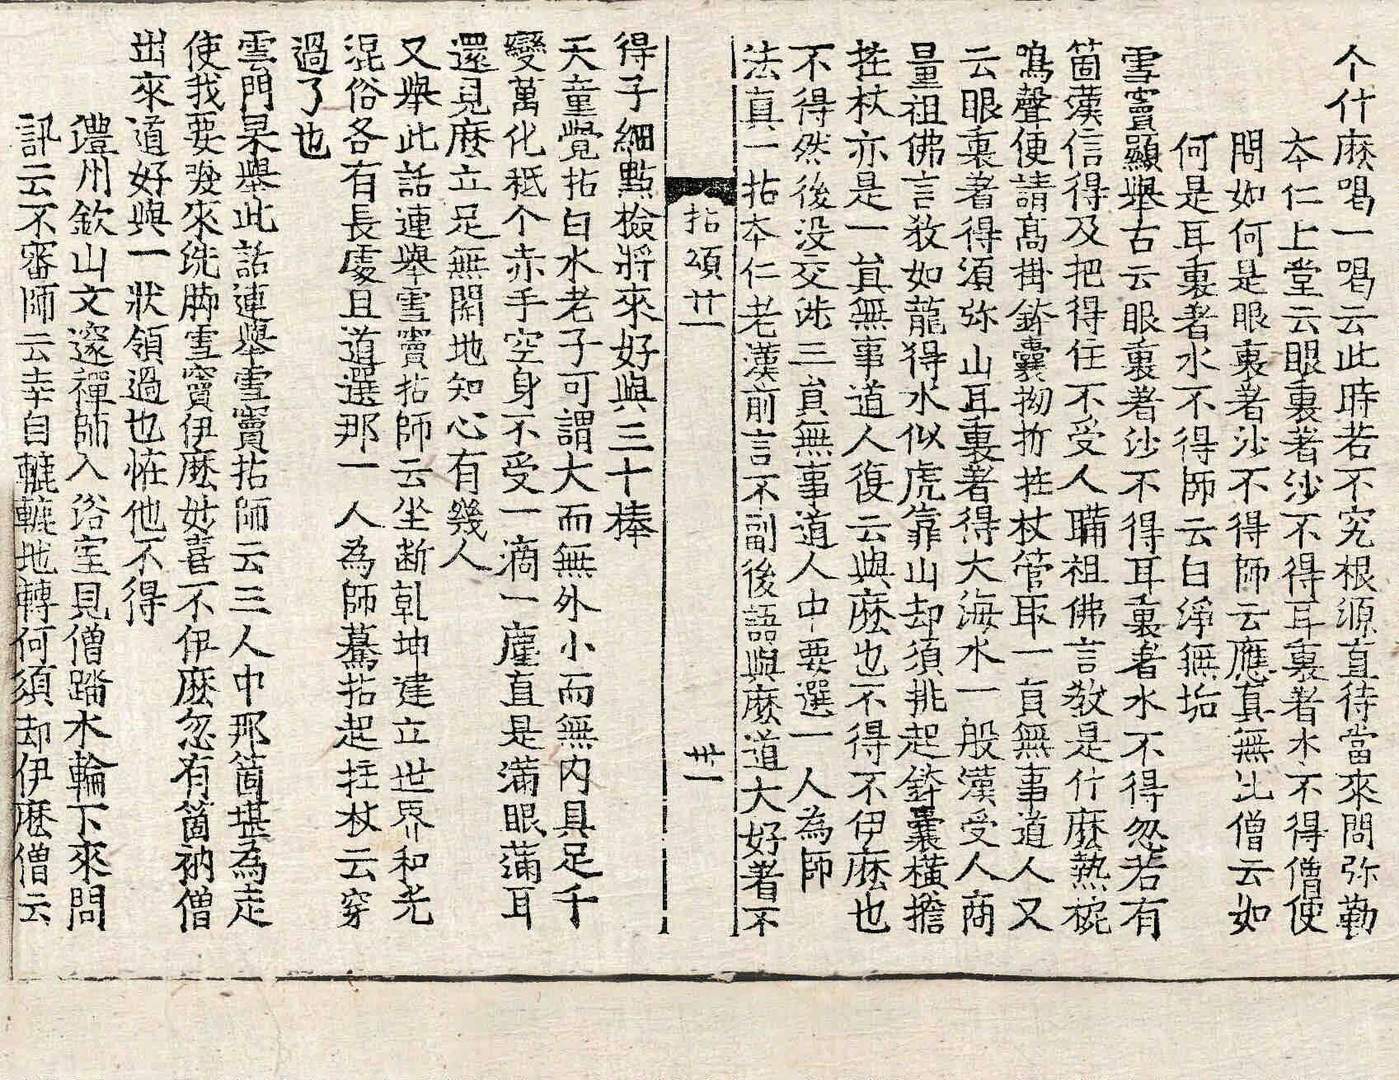 个什麽喝一喝云此時若不究根源直待當來問弥勒
本仁上堂云眼裏著沙不得耳裏著水不得僧便
問如何是眼裏著沙不得師云應真無比僧云如
何是耳裏著水不得師云白淨無垢
雪竇顯舉古云眼裏著沙不得耳裏著水不得忽若有
箇漢信得及把得住不受人瞞祖佛言教是什麽熱椀
鳴聲便請髙掛鉢囊拗折拄杖管取一員無事道人又
云眼裏著得須弥山耳裏著得大海水一般漢受人商
量祖佛言教如龍得水似虎靠山却須挑起鉢囊横擔
拄杖亦是一員無事道人復云與麽也不得不伊麽也
不得然後没交涉三員無事道人中要選一人為師
法真一拈本仁老漢前言不副後語與麽道大好著不
拈頌廿一
廿一
得子細點檢將來好與三十棒
天童覺拈白水老子可謂大而無外小而無内具足千
變萬化秪个赤手空身不受一滴一塵直是滿眼滿耳
還見麽立足無閑地知心有幾人
又舉此話連舉雪竇拈師云坐断乹坤建立世界和光
混俗各有長處且道選那一人為師驀拈起拄杖云穿
過了也
雲門杲舉此話連舉雪竇拈師云三人中那箇堪為走
使我要發來洗脚雪竇伊麽好喜不伊麽忽有箇衲僧
出來道好與一狀領過也恠他不得
澧州欽山文邃禪師入浴室見僧踏水輪下來問
訊云不審師云幸自轆轆地轉何須却伊麽僧云